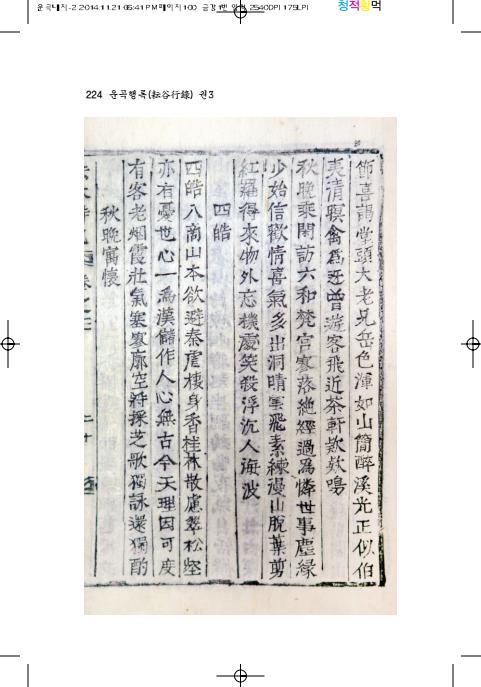 운곡대지-2 2014.11.21 05:41 PM 페이지100 2540DPI 175LPI
청적황먹
224 운곡행록(耘谷行錄) 권3
節喜謁堂頭大老兄岳色渾如山簡醉溪光正似伯
夷清暝禽爲迓曾遊客飛近茶軒欵欵鳴
秋晚乘閑訪六和梵宮寥落絶經過爲憐世事塵緣
少始信歡情喜氣多出洞晴雲飛素練漫山脫葉剪
紅羅得來物外忘機處笑殺浮沉人海波
四皓
四皓入商山本欲避秦虐棲身香桂林散慮翠松壑
亦有憂世心一爲漢儲作人心無古今天理因可度
有客老烟霞壯氣塞寥廓空將採芝歌獨詠還獨酌
秋晚寓懷